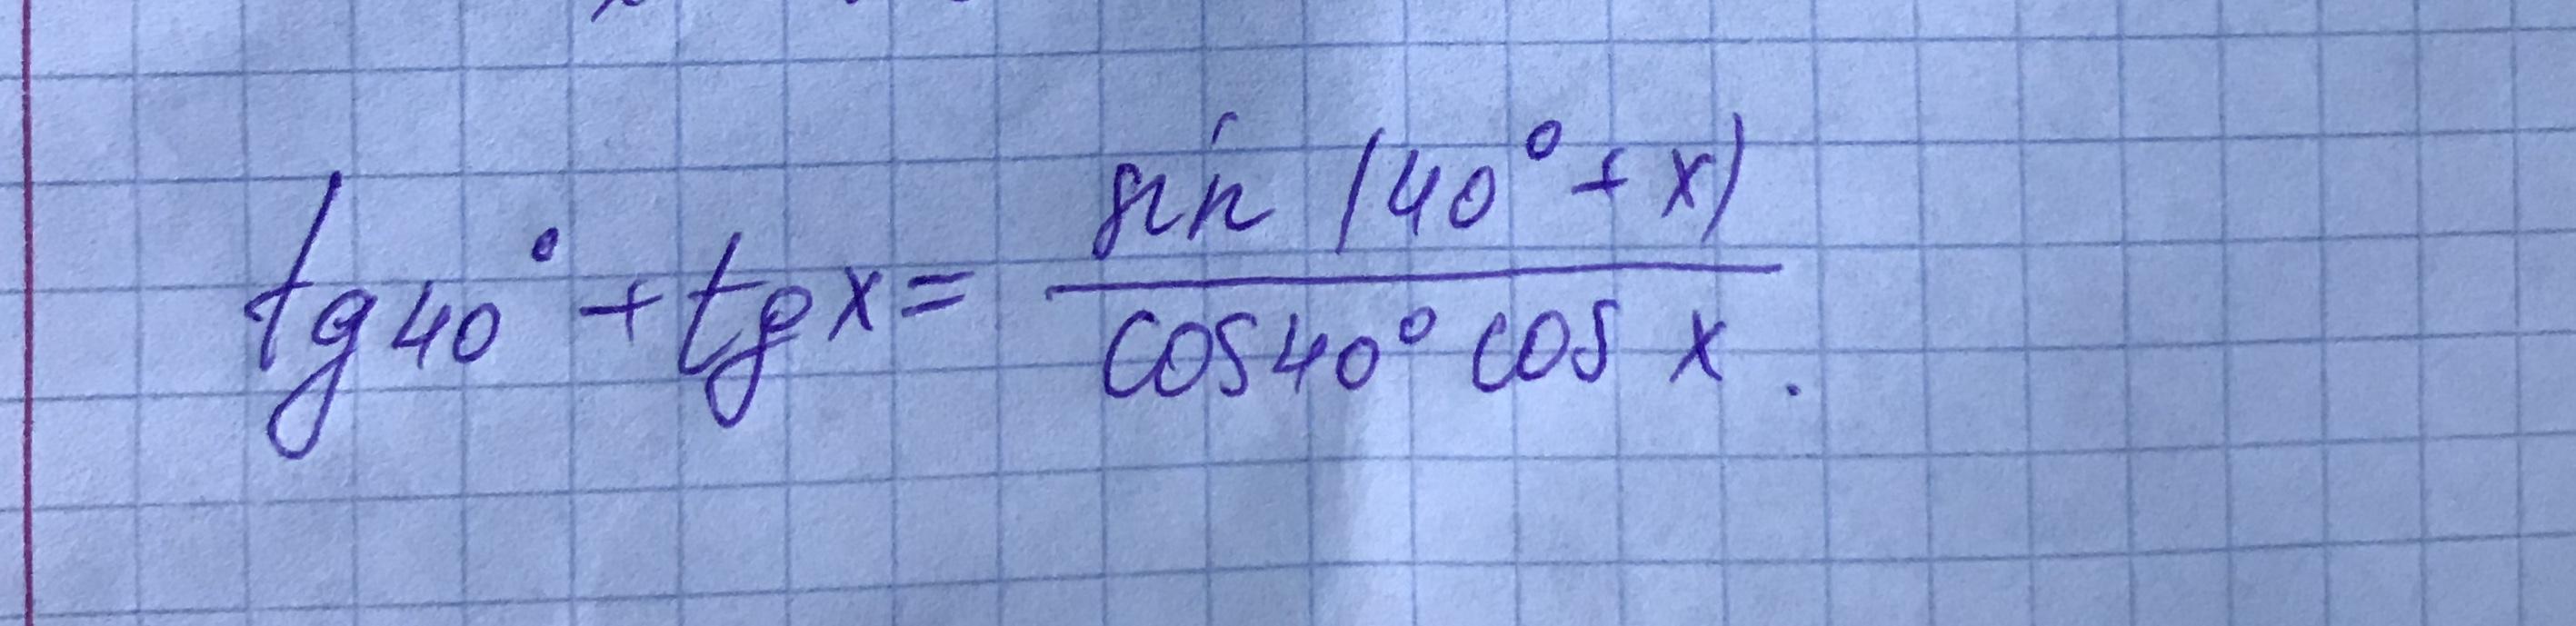 tg 40° + tg x = sin (40° + x) / cos 40° cos x.